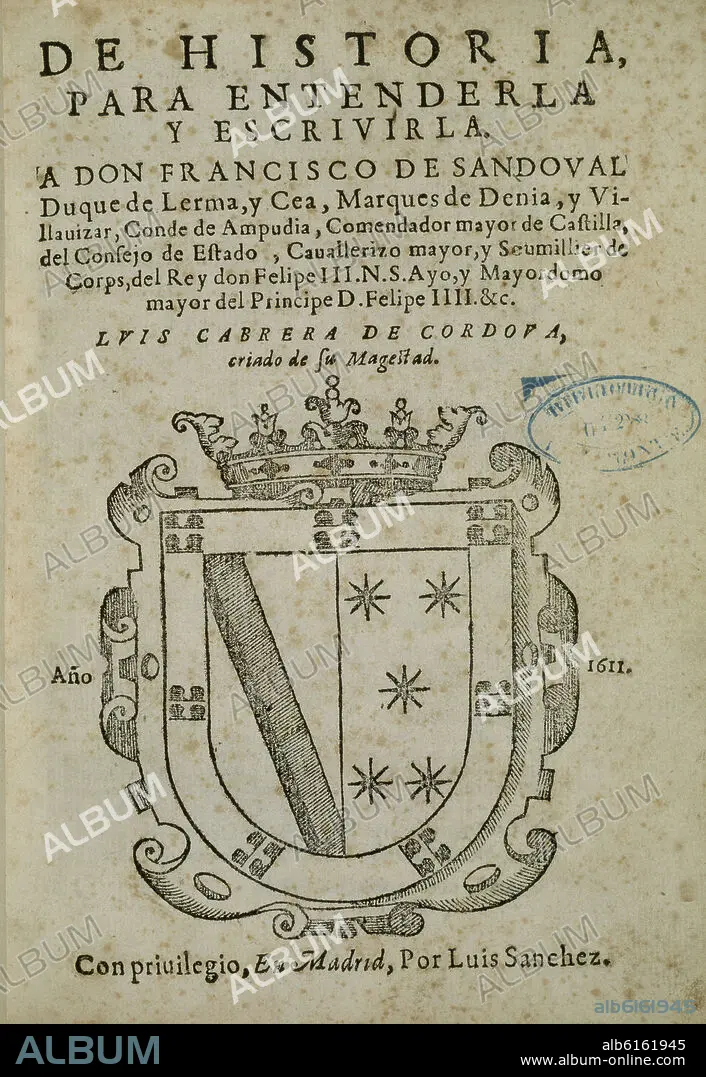 DE HISTORIA,
PARA ENTENDERLA
Y ESCRIVIRLA.
A DON FRANCISCO DE SANDOVAL
Duque de Lerma, y Cea, Marques de Denia, y Vi-
llauizar, Conde de Ampudia, Comendador mayor de Caſtilla,
del Conſejo de Eſtado, Cauallerizo mayor, y Seumillier de
Corps, del Rey don Felipe III. N. S. Ayo, y Mayordomo
mayor del Principe D. Felipe IIII. &c.
LVIS CABRERA DE CORDOVA,
criado de ſu Mageſtad.
Año 1611.
Con priuilegio, En Madrid, Por Luis Sanchez.
ALBUM
alb6161945
ALBUM
alb6161945
www.album-online.com